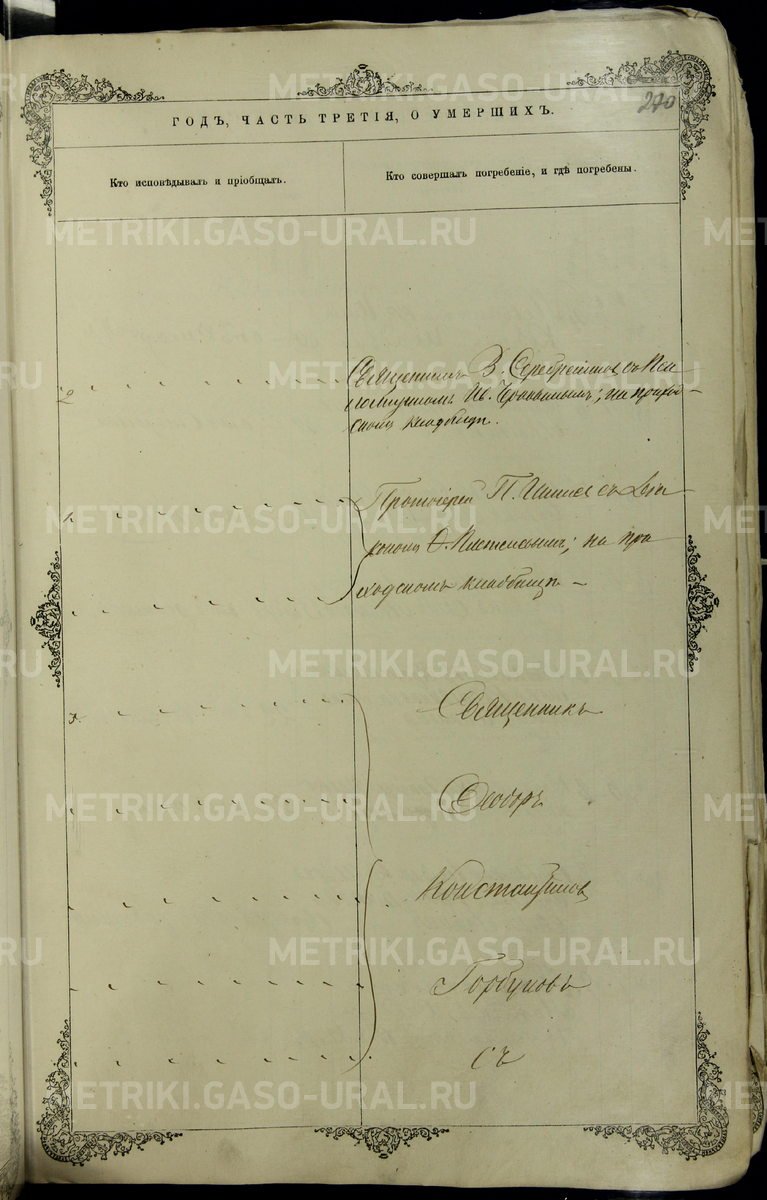 270
ГОДЪ, ЧАСТЬ ТРЕТІЯ, О УМЕРШИХЪ.
Кто исповѣдывалъ и пріобщалъ.
Кто совершалъ погребеніе, и гдѣ погребены.
Священникъ В. Серебренниковъ съ
на приход-
скомъ кладбищѣ.
Протоіерей П. съ Діа-
кономъ на при
ходскомъ кладбищѣ -
Священникъ
Ѳеодоръ
Константиновъ
Горбуновъ
съ
METRIKI.GASO-URAL.RU